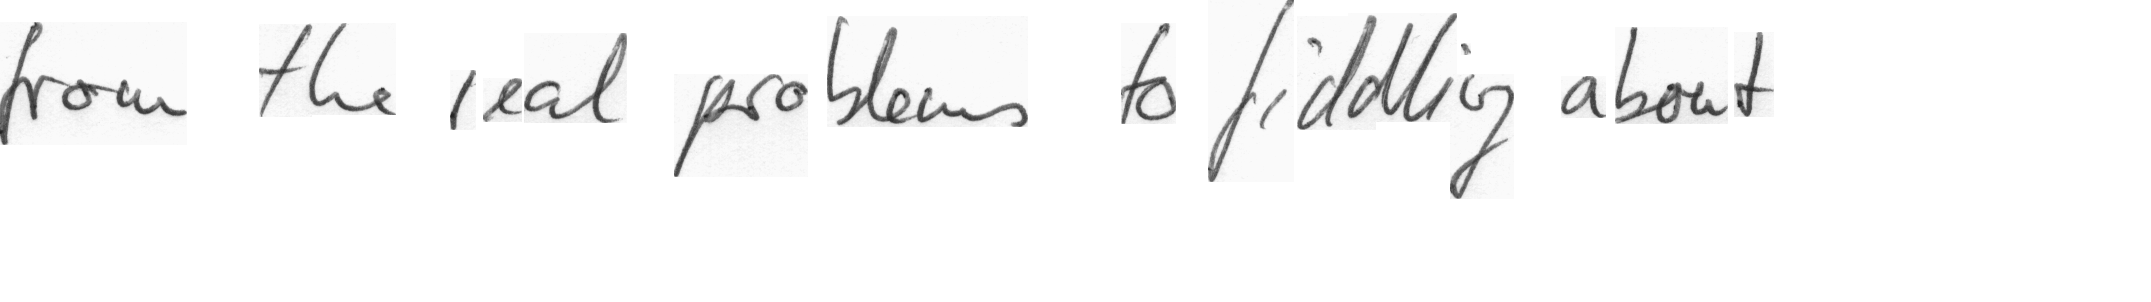 from the real problems to fiddling about